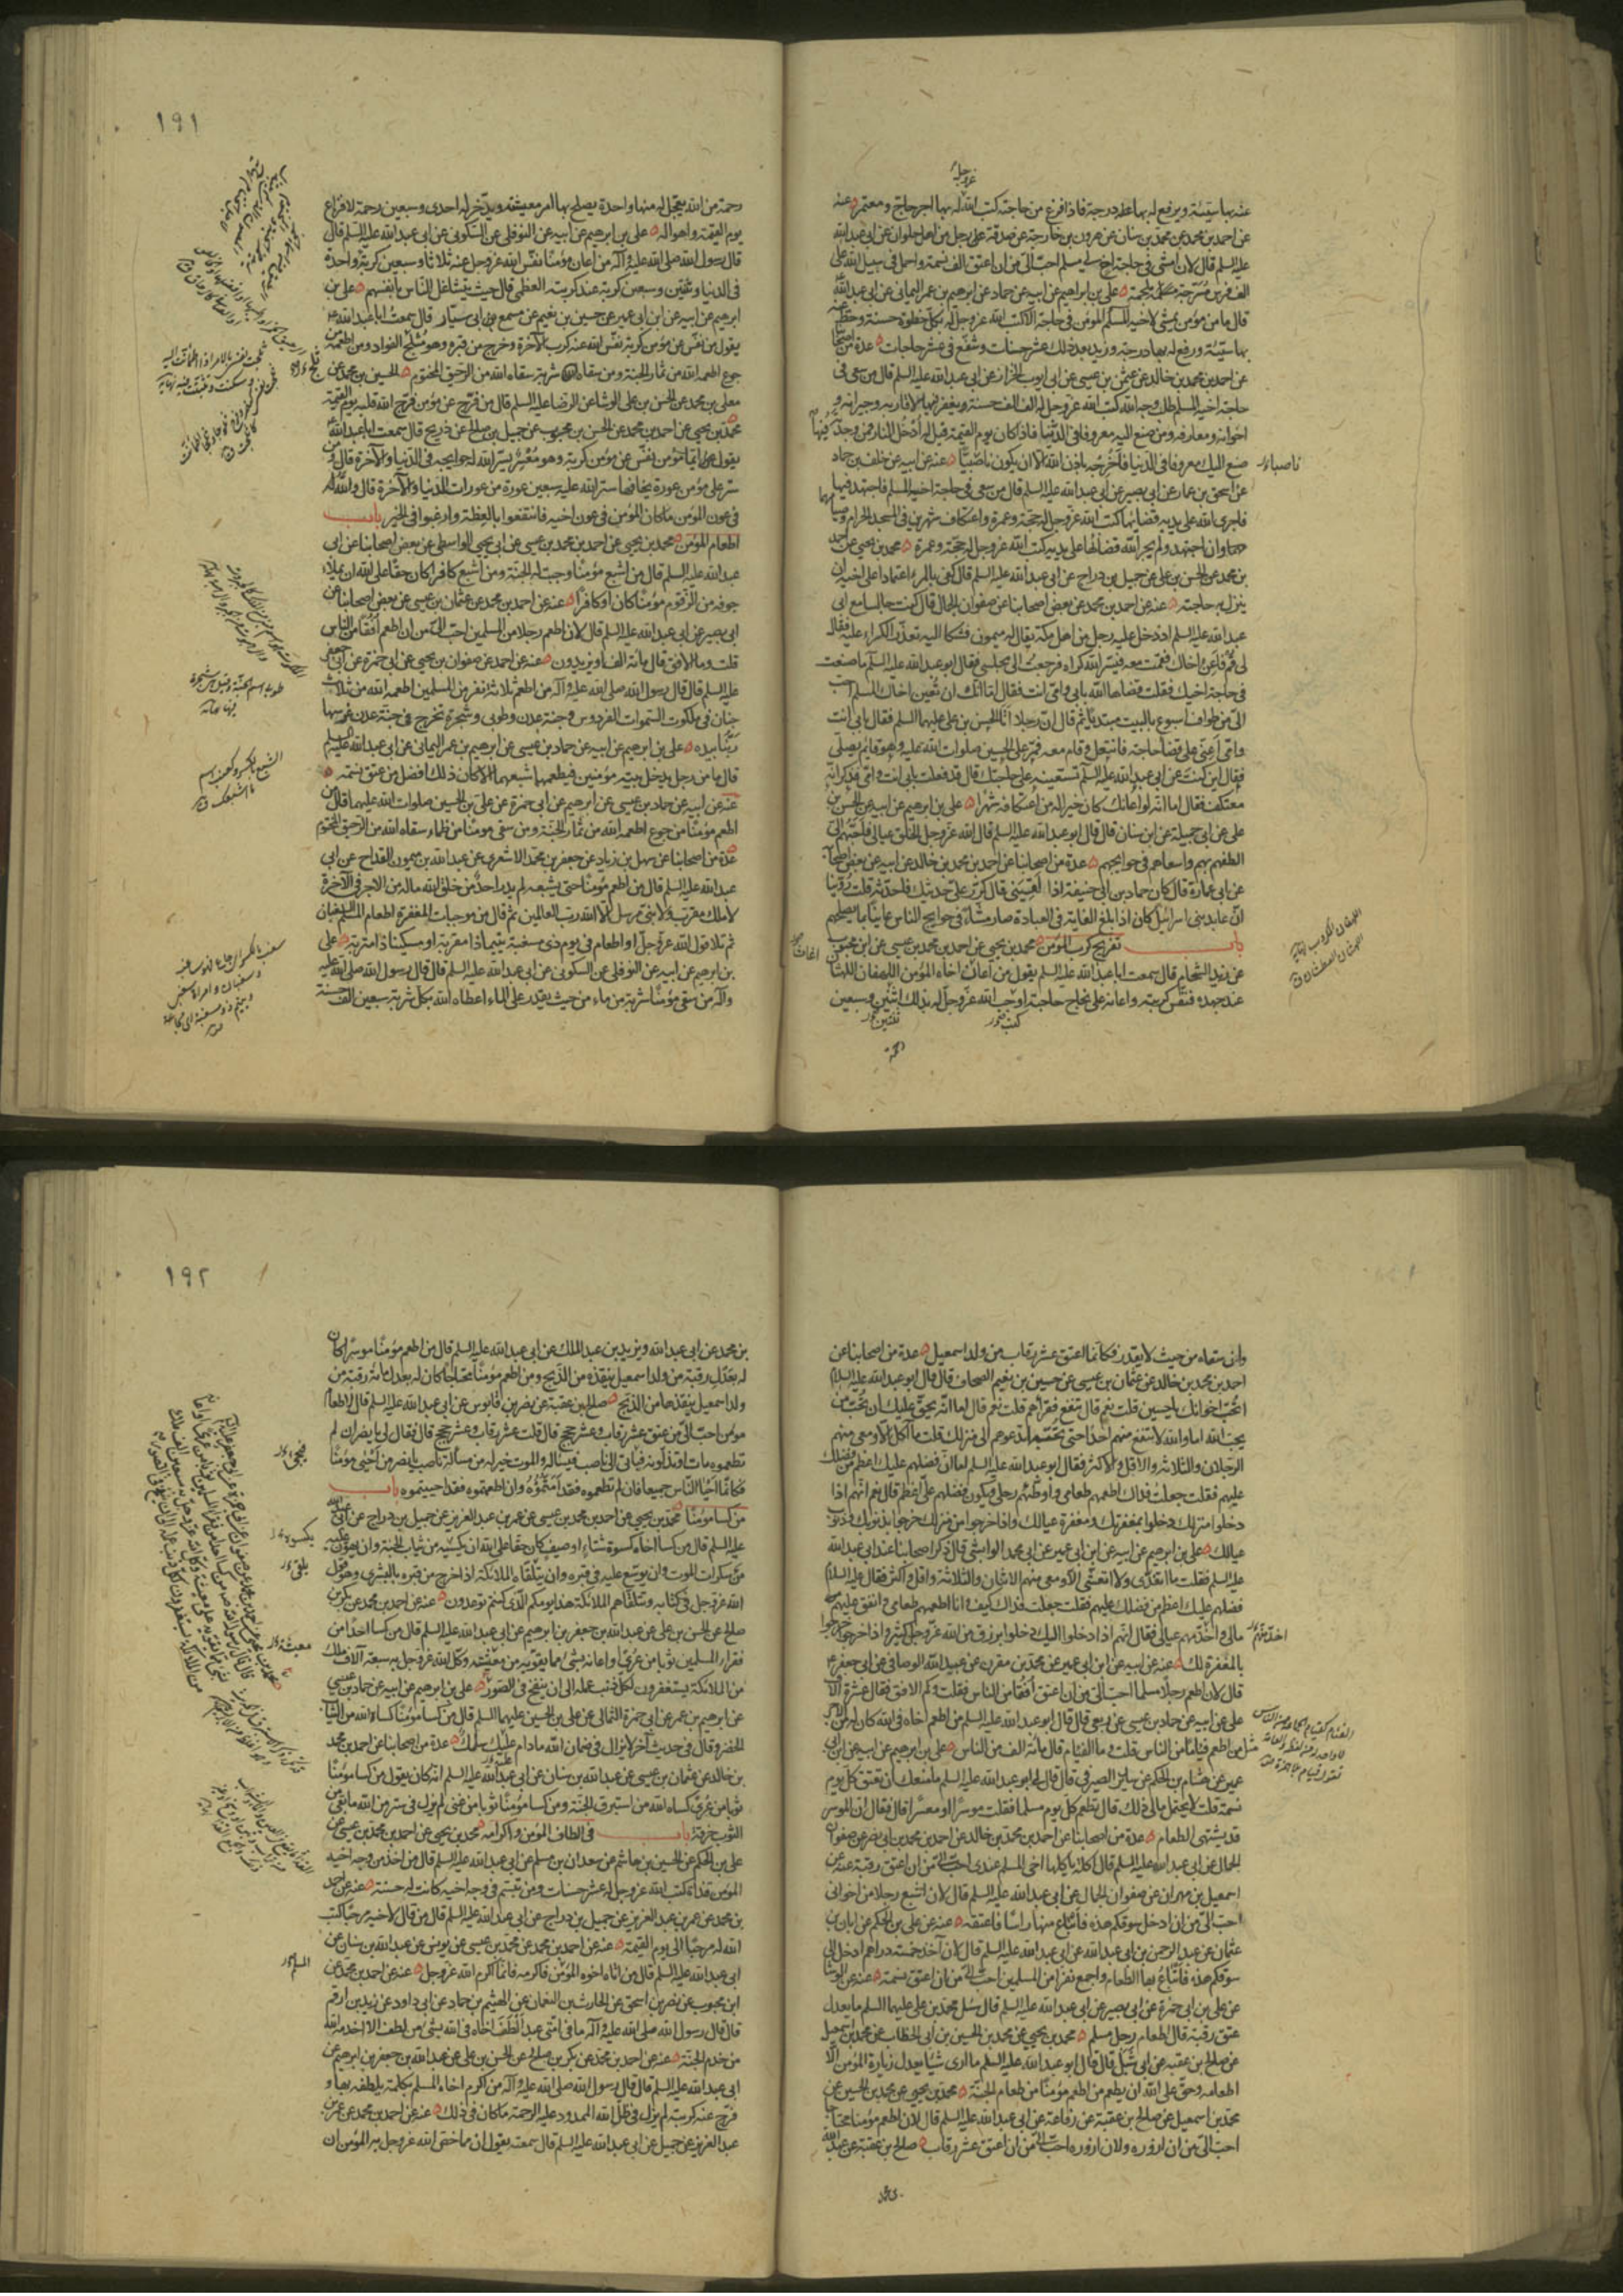 عنه بها سيئة ويرفع له بها عله درجة فاذا فرغ من حاجته كتب الله له بها اجر حاج ومعتمر عنه
عن احمد بن محمد عن محمد بن سنان عن هرون بن خارجة عن صدقة عن رجل من اهل حلوان عن ابى عبد الله
عليه السلم قال لان امشى فى حاجة اخ لى مسلم احب الى من ان اعتق الف نسمة واحمل فى سبيل الله على
الف فرس مسرجة ملجمة على بن ابراهيم عن ابيه عن حماد عن ابرهيم بن عمر اليمانى عن ابى عبد الله
قال ما من مؤمن يمشى لاخيه المؤمن فى حاجة الا كتب الله عز وجل له بكل خطوة حسنة وحط عنه
بها سيئة ورفع له بها درجة وزيد بعد ذلك عشر حسنات وشفع فى عشر حاجات عدة من اصحابنا
عن احمد بن محمد بن خالد عن عثمن بن عيسى عن ابى ايوب الخزاز عن ابى عبد الله عليه السلم قال من سعى فى
حاجة اخيه المسلم طلب وجه الله كتب الله عز وجل له الف الف حسنة ويغفر فيها لاقاربه وجيرانه و
اخوانه ومعارفه ومن صنع اليه معروفا فى الدنيا فاذا كان يوم القيمة قيل له ادخل النار فمن وجدته فيها
صنع اليك معروفا فى الدنيا فاخرجه باذن الله الا ان يكون ناصبيا عنه عن ابيه عن خلف بن حماد
عن اسحق بن عمار عن ابى بصير عن ابى عبد الله عليه السلم قال من سعى فى حاجة اخيه المسلم فاجتهد فيها
فاجرى الله على يديه قضاءها كتب الله عز وجل له حجة وعمرة واعتكاف شهرين فى المسجد الحرام وصيامهما
وان اجتهد ولم يجر الله قضاءها على يديه كتب الله عز وجل له حجة وعمرة محمد بن يحيى عن احمد
بن محمد عن الحسن بن على عن جميل بن دراج عن ابى عبد الله عليه السلم قال كفى بالمرء اعتمادا على اخيه ان
ينزل به حاجته عنه عن احمد بن محمد عن بعض اصحابنا عن صفوان الجمال قال كنت جالسا مع ابى
عبد الله عليه السلم اذ دخل عليه رجل من اهل مكة يقال له ميمون فشكا اليه تعذر الكراء عليه فقال
لى قم فاعن اخاك فقمت معه فيسر الله كراه فرجعت الى مجلسى فقال ابو عبد الله عليه السلم ما صنعت
فى حاجة اخيك فقلت قضاها الله بابى وامى انت فقال اما انك ان تعين اخاك المسلم احب
الى من طواف اسبوع بالبيت مبتديا ثم قال ان رجلا اتى الحسن بن على عليهما السلم فقال بابى انت
وامى اعنى على قضاء حاجة فانتعل وقام معه فمر على الحسين صلوات الله عليه وهو قائم يصلى
فقال اين كنت عن ابى عبد الله عليه السلم تستعينه على حاجتك قال قد فعلت بابى انت وامى فذكر انه
معتكف فقال اما انه لو اعانك كان خيرا له من اعتكافه شهرا على بن ابرهيم عن ابيه عن الحسن بن
على عن ابى جميلة عن ابن سنان قال قال ابو عبد الله عليه السلم قال الله عز وجل الخلق عيالى فاحبهم الى
الطفهم بهم واسعاهم فى حوايجهم عدة من اصحابنا عن احمد بن محمد بن خالد عن ابيه عن بعض اصحابه
عن ابى عمارة قال كان حماد بن ابى حنيفة اذا لقينى قال كرر على حديثك فاحدثه قلت روينا
ان عابد بنى اسرائيل كان اذا بلغ الغاية فى العبادة صار مشاء فى حوايج الناس عانيا بما يصلحهم
باب تفريج كرب المؤمن محمد بن يحيى عن احمد بن محمد بن عيسى عن ابن محبوب
عن زيد الشحام قال سمعت ابا عبد الله عليه السلم يقول من اعان اخاه المؤمن اللهفان اللهثان
عند جهده فنفس كربته واعانه على نجاح حاجته اوجب الله عز وجل له بذلك اثنين وسبعين
رحمة
١٩١
رحمة من الله يعجل له منها واحدة يصلح بها امر معيشته ويدخر له احدى وسبعين رحمة لافزاع
يوم القيمة واهواله على بن ابرهيم عن ابيه عن النوفلى عن السكونى عن ابى عبد الله عليه السلم قال
قال رسول الله صلى الله عليه وآله من اعان مؤمنا نفس الله عز وجل عنه ثلاثا وسبعين كربة واحدة
فى الدنيا وثنتين وسبعين كربة عند كربته العظمى قال حيث يتشاغل الناس بانفسهم على بن
ابرهيم عن ابيه عن ابن ابى عمير عن حسين بن نعيم عن مسمع بن ابى سيار قال سمعت ابا عبد الله
يقول من نفس عن مؤمن كربة نفس الله عنه كرب الآخرة وخرج من قبره وهو مثلج الفواد ومن اطعمه من
جوع اطعمه الله من ثمار الجنة ومن سقاه شربة سقاه الله من الرحيق المختوم الحسين بن محمد عن
معلى بن محمد عن الحسن بن على الوشا عن الرضا عليه السلم قال من فرج عن مؤمن فرج الله قلبه يوم القيمة
محمد بن يحيى عن احمد بن محمد عن الحسن بن محبوب عن جميل بن صالح عن ذريح قال سمعت ابا عبد الله
يقول ايما مؤمن نفس عن مؤمن كربة وهو معسر يسر الله له حوايجه فى الدنيا والآخرة قال ومن
ستر على مؤمن عورة يخافها ستر الله عليه سبعين عورة من عورات الدنيا والآخرة قال والله
فى عون المؤمن ما كان المؤمن فى عون اخيه فانتفعوا بالعظة وارغبوا فى الخير باب
اطعام المؤمن محمد بن يحيى عن احمد بن محمد بن عيسى عن ابى يحيى الواسطى عن بعض اصحابنا عن ابى
عبد الله عليه السلم قال من اشبع مؤمنا وجبت له الجنة ومن اشبع كافرا كان حقا على الله ان يملاء
جوفه من الزقوم مؤمنا كان او كافرا عنه عن احمد بن محمد عن عثمان بن عيسى عن بعض اصحابنا عن
ابى بصير عن ابى عبد الله عليه السلم قال لان اطعم رجلا من المسلمين احب الى من ان اطعم افقا من الناس
قلت وما الافق قال مائة الف او يزيدون عنه عن احمد عن صفوان بن يحيى عن ابى حمزة عن ابى جعفر
عليه السلم قال قال رسول الله صلى الله عليه وآله من اطعم ثلاثة نفر من المسلمين اطعمه الله من ثلاث
جنان فى ملكوت السموات الفردوس وجنة عدن وطوبى وشجرة تخرج فى جنة عدن غرسها
ربنا بيده على بن ابرهيم عن ابيه عن حماد بن عيسى عن ابرهيم بن عمر اليمانى عن ابى عبد الله عليه السلم
قال ما من رجل يدخل بيته مؤمنين فيطعمهما شبعهما الا كان ذلك افضل من عتق نسمة
عنه عن ابيه عن حماد بن عيسى عن ابرهيم عن ابى حمزة عن على بن الحسين صلوات الله عليهما قال من
اطعم مؤمنا من جوع اطعمه الله من ثمار الجنة ومن سقى مومنا من ظماء سقاه الله من الرحيق المختوم
عدة من اصحابنا عن سهل بن زياد عن جعفر بن محمد الاشعرى عن عبد الله بن ميمون القداح عن ابى
عبد الله عليه السلم قال من اطعم مؤمنا حتى يشبعه لم يدر احد من خلق الله ماله من الاجر فى الآخرة
لا ملك مقرب ولا نبى مرسل الا الله رب العالمين ثم قال من موجبات المغفرة اطعام المسلم السغبان
ثم تلا قول الله عز وجل او اطعام فى يوم ذى مسغبة يتيما ذا مقربة او مسكينا ذا متربة على
بن ابرهيم عن ابيه عن النوفلى عن السكونى عن ابى عبد الله عليه السلم قال قال رسول الله صلى الله عليه
وآله من سقى مؤمنا شربة من ماء من حيث يقدر على الماء اعطاه الله بكل شربة سبعين الف حسنة
وان سقاه من حيث لا يقدر فكانما اعتق عشر رقاب من ولد اسمعيل عدة من اصحابنا عن
احمد بن محمد بن خالد عن عثمان بن عيسى عن حسين بن نعيم الصحاف قال قال ابو عبد الله عليه السلام
اتحب اخوانك يا حسين قلت نعم قال تنفع فقراءهم قلت نعم قال اما انه يحق عليك ان تحب من
يحب الله اما والله لا تنفع منهم احدا حتى تحبه اتدعوهم الى منزلك قلت ما آكل الا ومعى منهم
الرجلان والثلاثة والاقل والاكثر فقال ابو عبد الله عليه السلم اما ان فضلهم عليك اعظم من فضلك
عليهم فقلت جعلت فداك اطعمهم طعامى واوطئهم رحلى ويكون فضلهم على اعظم قال نعم انهم اذا
دخلوا منزلك دخلوا بمغفرتك ومغفرة عيالك واذا خرجوا من منزلك خرجوا بذنوبك وذنوب
عيالك على بن ابرهيم عن ابيه عن ابن ابى عمير عن ابى محمد الوابشى قال ذكر اصحابنا عند ابى عبد الله
عليه السلم فقلت ما اتغدى ولا اتعشى الا ومعى منهم الاثنان والثلاثة واقل واكثر فقال عليه السلام
فضلهم عليك اعظم من فضلك عليهم فقلت جعلت فداك كيف وانا اطعمهم طعامى وانفق عليهم من
مالى واخدمهم عيالى فقال انهم اذا دخلوا اليك دخلوا برزق من الله عز وجل كثير واذا خرجوا خرجوا
بالمغفرة لك عنه عن ابيه عن ابن ابى عمير عن محمد بن مقرن عن عبيد الله الوصافى عن ابى جعفر
قال لان اطعم رجلا مسلما احب الى من ان اعتق افقا من الناس فقلت وكم الافق فقال عشرة آلاف
على عن ابيه عن حماد بن عيسى عن ربعى قال قال ابو عبد الله عليه السلم من اطعم اخاه فى الله كان له من الاجر
مثل من اطعم فئاما من الناس قلت وما الفئام قال مائة الف من الناس على بن ابرهيم عن ابيه عن ابن ابى
عمير عن هشام بن الحكم عن سدير الصيرفى قال قال لى ابو عبد الله عليه السلم ما منعك ان تعتق كل يوم
نسمة قلت لا يحتمل مالى ذلك قال تطعم كل يوم مسلما فقلت موسرا او معسرا قال فقال ان الموسر
قد يشتهى الطعام عدة من اصحابنا عن احمد بن محمد بن خالد عن احمد بن محمد بن ابى نصر عن صفوان
الجمال عن ابى عبد الله عليه السلم قال اكلة ياكلها اخى المسلم عندى احب الى من ان اعتق رقبة عنه عن
اسمعيل بن مهران عن صفوان الجمال عن ابى عبد الله عليه السلم قال لان اشبع رجلا من اخوانى
احب الى من ان ادخل سوقكم هذه فابتاع منها راسا فاعتقه عنه عن على بن الحكم عن ابان بن
عثمان عن عبد الرحمن بن ابى عبد الله عن ابى عبد الله عليه السلم قال لان آخذ خمسة دراهم ادخل الى
سوقكم هذه فابتاع بها الطعام واجمع نفرا من المسلمين احب الى من ان اعتق نسمة عنه عن الوشا
عن على بن ابى حمزة عن ابى بصير عن ابى عبد الله عليه السلم قال سئل محمد بن على عليهما السلم ما يعدل
عتق رقبة قال اطعام رجل مسلم محمد بن يحيى عن محمد بن الحسين بن ابى الخطاب عن محمد بن اسمعيل
عن صالح بن عقبه عن ابى شبل قال قال ابو عبد الله عليه السلم ما ارى شيئا يعدل زيارة المؤمن الا
اطعامه وحق على الله ان يطعم من اطعم مؤمنا من طعام الجنة محمد بن يحيى عن محمد بن الحسين عن
محمد بن اسمعيل عن صالح بن عقبة عن رفاعة عن ابى عبد الله عليه السلم قال لان اطعم مؤمنا محتاجا
احب الى من ان ازوره ولان ازوره احب الى من ان اعتق عشر رقاب صالح بن عقبة عن عبد الله
١٩٢
بن محمد عن ابى عبد الله ويزيد بن عبد الملك عن ابى عبد الله عليه السلم قال من اطعم مؤمنا موسرا كان
له يعدل رقبة من ولد اسمعيل ينقذه من الذبح ومن اطعم مؤمنا محتاجا كان له يعدل مائة رقبة من
ولد اسمعيل ينقذها من الذبح صالح بن عقبة عن نصر بن قابوس عن ابى عبد الله عليه السلم قال لاطعام
مومن احب الى من عتق عشر رقاب وعشر حجج قال قلت عشر رقاب وعشر حجج قال فقال لى يا نصر ان لم
تطعموه مات او تذلونه فياتى الى ناصب فيساله والموت خير له من مسالة ناصب يا نصر من احيى مؤمنا
فكانما احيا الناس جميعا فان لم تطعموه فقد امتموه وان اطعمتموه فقد احييتموه باب
من كسا مؤمنا محمد بن يحيى عن احمد بن محمد بن عيسى عن عمر بن عبد العزيز عن جميل بن دراج عن ابى عبد الله
عليه السلم قال من كسا اخاه كسوة شتاء او صيف كان حقا على الله ان يكسيه من ثياب الجنة وان يهون عليه
من سكرات الموت وان يوسع عليه فى قبره وان يتلقاه الملائكة اذا خرج من قبره بالبشرى وهو قول
الله عز وجل فى كتابه وتتلقاهم الملائكة هذا يومكم الذى كنتم توعدون عنه عن احمد بن محمد عن بكر بن
صالح عن الحسن بن على عن عبد الله بن جعفر بن ابرهيم عن ابى عبد الله عليه السلم قال من كسا احدا من
فقراء المسلمين ثوبا من عرى او اعانه بشئ مما يقوته من معيشته وكل الله عز وجل به سبعة آلاف ملك
من الملائكة يستغفرون لكل ذنب عمله الى ان ينفخ فى الصور على بن ابرهيم عن ابيه عن حماد بن عيسى
عن ابرهيم بن عمر عن ابى حمزة الثمالى عن على بن الحسين عليهما السلم قال من كسا مؤمنا كساه الله من الثياب
الخضر وقال فى حديث آخر لا يزال فى ضمان الله مادام عليه سلك عدة من اصحابنا عن احمد بن محمد
بن خالد عن عثمان بن عيسى عن عبد الله بن سنان عن ابى عبد الله عليه السلم انه كان يقول من كسا مؤمنا
ثوبا من عرى كساه الله من استبرق الجنة ومن كسا مؤمنا ثوبا من غنى لم يزل فى ستر من الله ما بقى من
الثوب خرقة باب فى الطاف المؤمن واكرامه محمد بن يحيى عن احمد بن محمد بن عيسى عن
على بن الحكم عن الحسين بن هاشم عن سعدان بن مسلم عن ابى عبد الله عليه السلم قال من اخذ من وجه اخيه
المؤمن قذاة كتب الله عز وجل له عشر حسنات ومن تبسم فى وجه اخيه كانت له حسنة عنه عن احمد
بن محمد عن عمر بن عبد العزيز عن جميل بن دراج عن ابى عبد الله عليه السلم قال من قال لاخيه مرحبا كتب
الله له مرحبا الى يوم القيمة عنه عن احمد بن محمد عن محمد بن عيسى عن يونس عن عبد الله بن سنان عن
ابى عبد الله عليه السلم قال من اتاه اخوه المؤمن فاكرمه فانما اكرم الله عز وجل عنه عن احمد بن محمد عن
ابن محبوب عن نصر بن اسحق عن الحارث بن النعمان عن الهيثم بن حماد عن ابى داود عن زيد بن ارقم
قال قال رسول الله صلى الله عليه وآله ما فى امتى عبد الطف اخاه فى الله بشئ من لطف الا اخدمه الله
من خدم الجنة عنه عن احمد بن محمد عن بكر بن صالح عن الحسن بن على عن عبد الله بن جعفر بن ابرهيم عن
ابى عبد الله عليه السلم قال قال رسول الله صلى الله عليه وآله من اكرم اخاه المسلم بكلمة يلطفه بها و
فرج عنه كربته لم يزل فى ظل الله الممدود عليه الرحمة ما كان فى ذلك عنه عن احمد بن محمد عن عمر بن
عبد العزيز عن جميل عن ابى عبد الله عليه السلم قال سمعته يقول ان مما خص الله عز وجل به المؤمن ان